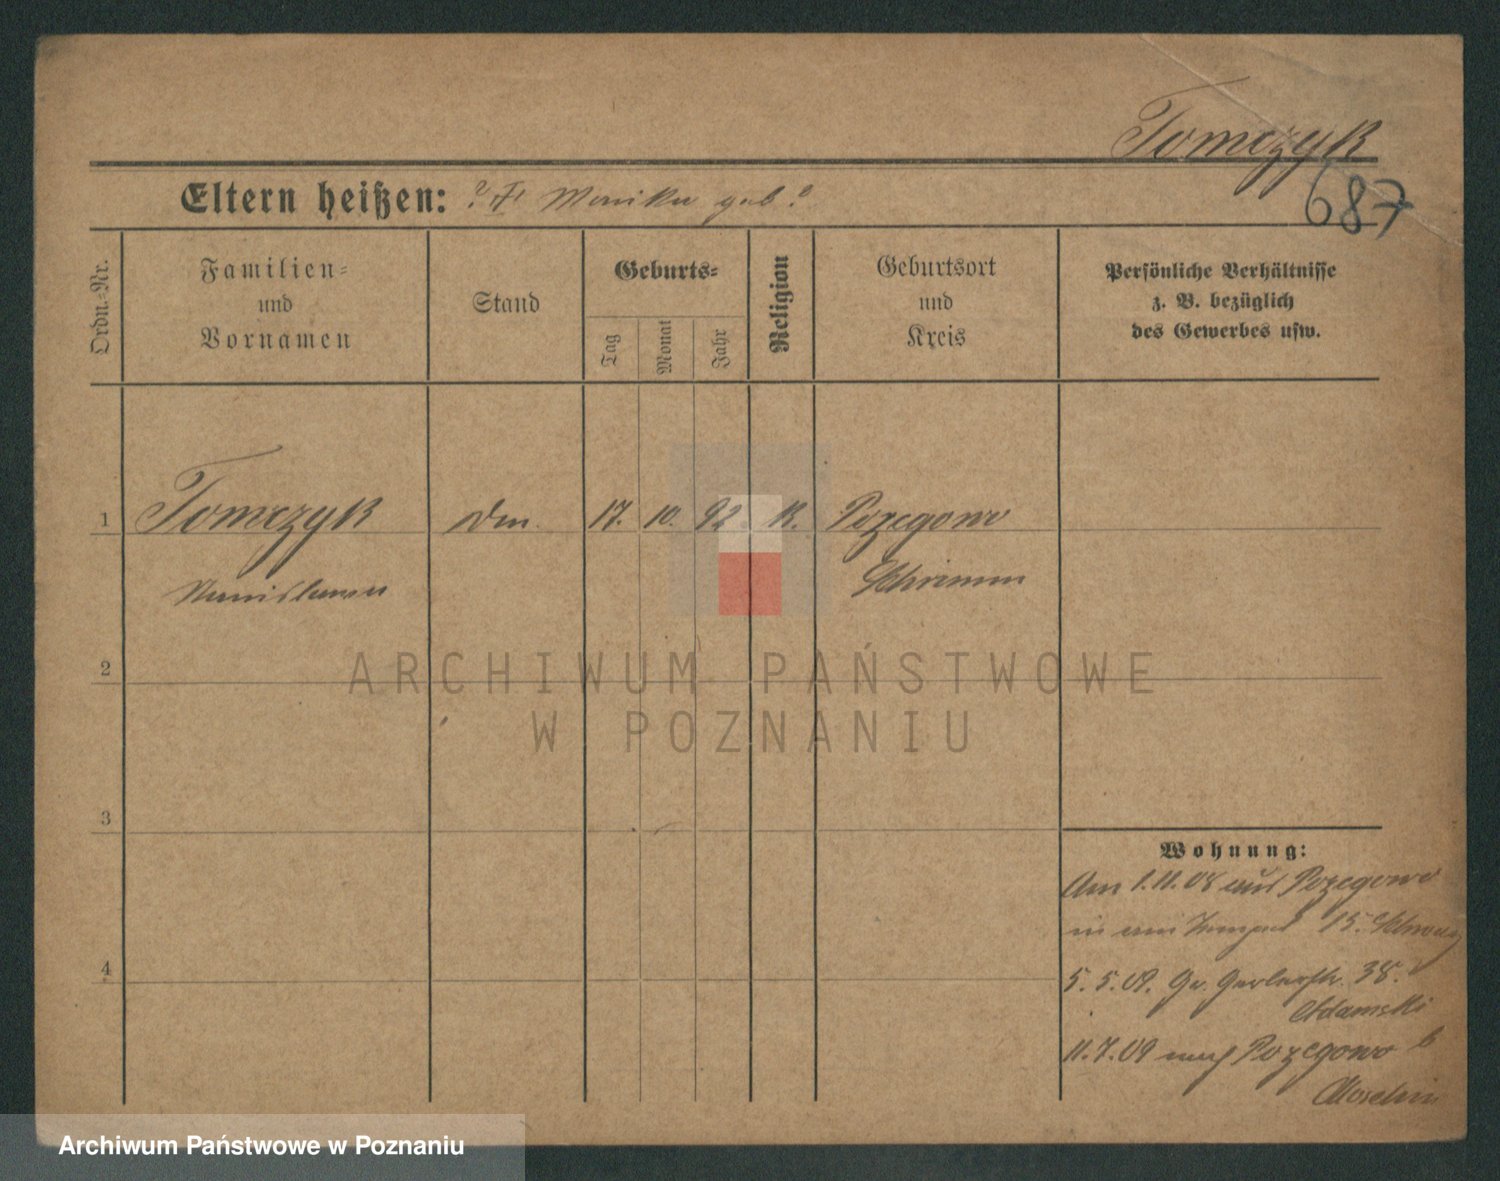 Tomczyk
687
Eltern heißen: ? † Monika geb ?
Ordn.-Nr.
Familien-
und
Vornamen
Stand
Geburts-
Tag
Monat
Jahr
Religion
Geburtsort
und
Kreis
Persönliche Verhältnisse
z. B. bezüglich
des Gewerbes usw.
1
Tomczyk
17. 10. 92. K. Pozegowo
Stanislawa
Schrimm
2
3
4
Wohnung:
Am 1.11.08 aus Pozegowo
15.
5. 5. 09. Gr. Gerberstr. 38.
Adamski
11.7.09 nach Pozegowo b
Moschin
ARCHIWUM PAŃSTWOWE
W POZNANIU
Archiwum Państwowe w Poznaniu